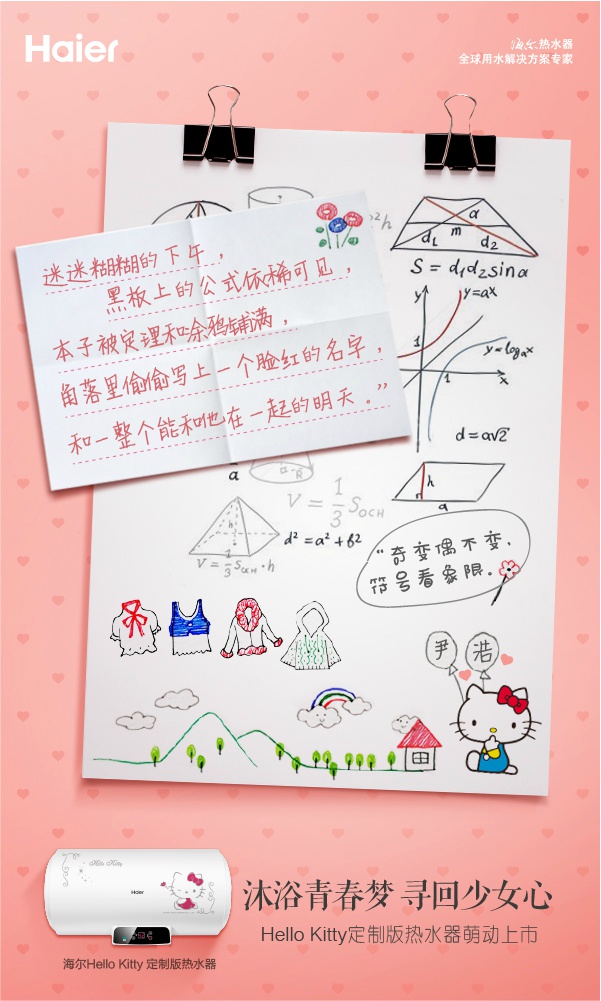 Haier
海尔热水器
全球用水解决方案专家
迷迷糊糊的下午，
黑板上的公式依稀可见，
本子被定理和涂鸦铺满，
角落里偷偷写上一个脸红的名字，
和一整个能和他在一起的明天。”
h
a
m
d₁
d₂
S = d₁d₂sinα
y
y=aˣ
1
y=logₐx
1
x
d = a√2
a
a
R
V = 1/3 Sосн
h
a
h
d² = a² + b²
V = 1/3 Sосн · h
“奇变偶不变，
符号看象限。”
尹 浩
Hello Kitty
Haier
沐浴青春梦 寻回少女心
Hello Kitty定制版热水器萌动上市
海尔Hello Kitty 定制版热水器